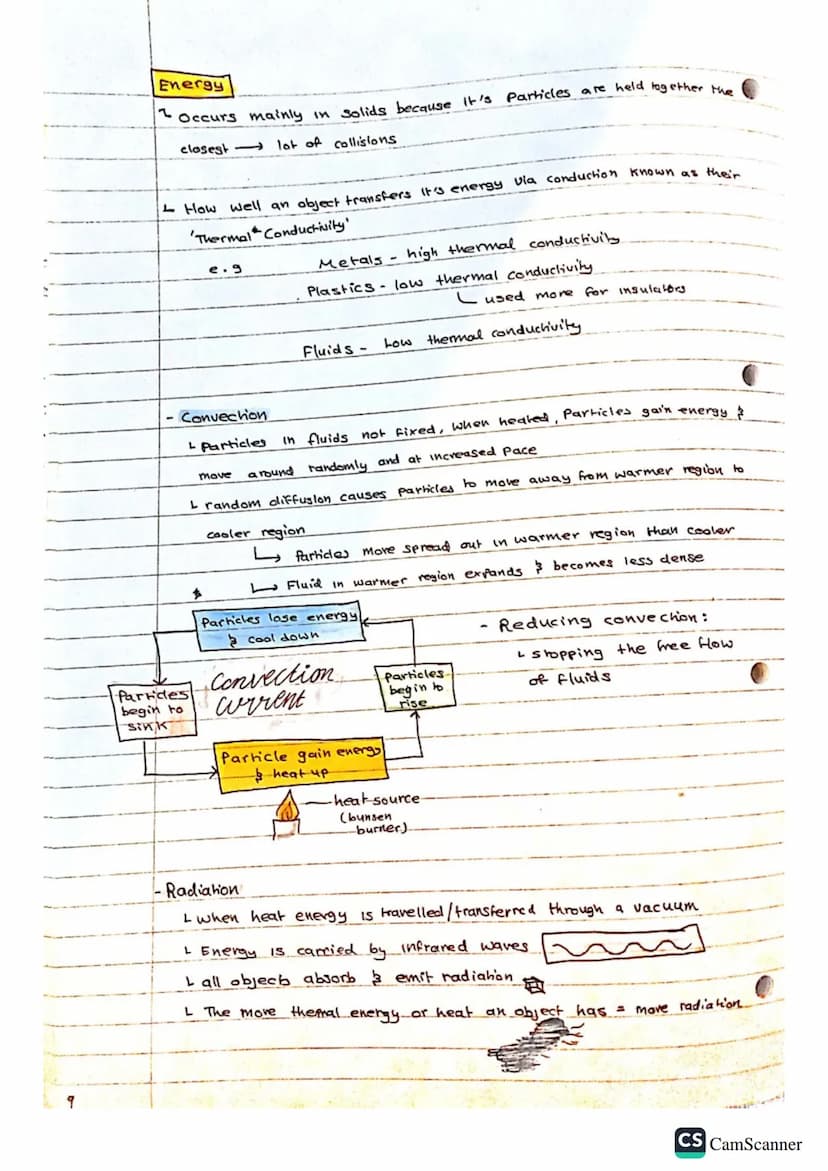 Energy
Occurs mainly in solids because it's particles are held together the
closest → lot of collisions
How well an object transfers it's energy via conduction known as their
'Thermal Conductivity'
e.g Metals - high thermal conductivity
Plastics - low thermal conductivity
used more for insulators
Fluids - Low thermal conductivity
- Convection
Particles in fluids not fixed, when heated, Particles gain energy &
move around randomly and at increased pace
random diffusion causes particles to move away from warmer region to
cooler region
Particles more spread out in warmer region than cooler
Fluid in warmer region expands & becomes less dense
Particles lose energy
& cool down
- Reducing convection:
stopping the free flow
of fluids
Convection
current
Particles
begin to
rise
Particles
begin to
sink
Particle gain energy
& heat up
heat source
(bunsen
burner)
- Radiation
when heat energy is travelled/transferred through a vacuum
Energy is carried by infrared waves
all objects absorb & emit radiation
The more themal energy or heat an object has = more radiation
9
CS CamScanner